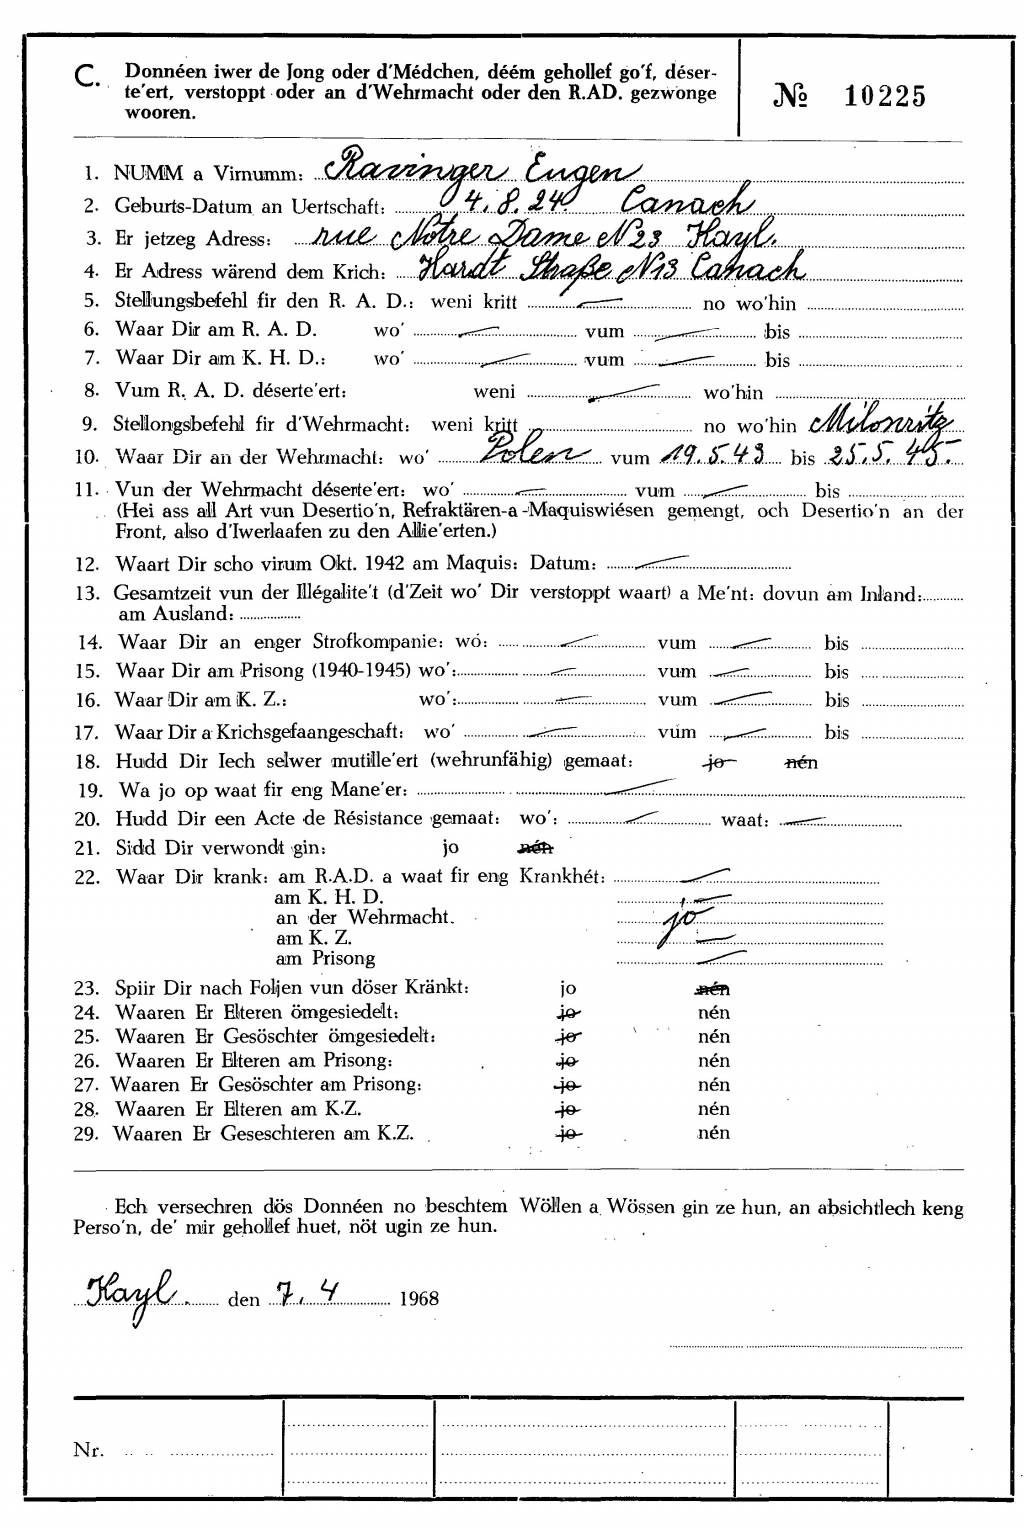 C. Donnéen iwer de Jong oder d'Médchen, déém gehollef go'f, déser-
te'ert, verstoppt oder an d'Wehrmacht oder den R.AD. gezwonge
wooren.
№ 10225
1. NUMM a Virnumm: Ravinger Eugen
2. Geburts-Datum an Uertschaft: 4.8.24 Canach
3. Er jetzeg Adress: rue Notre Dame N23 Kayl.
4. Er Adress wärend dem Krich: Hardt Straße N13 Canach
5. Stellungsbefehl fir den R. A. D.: weni kritt — no wo'hin
6. Waar Dir am R. A. D. wo' — vum — bis
7. Waar Dir am K. H. D.: wo' — vum — bis
8. Vum R. A. D. déserte'ert: weni — wo'hin
9. Stellongsbefehl fir d'Wehrmacht: weni kritt no wo'hin Milonritz
10. Waar Dir an der Wehrmacht: wo' Polen vum 19.5.43 bis 25.5.45.
11. Vun der Wehrmacht déserte'ert: wo' — vum — bis
(Hei ass all Art vun Desertio'n, Refraktären-a-Maquiswiésen gemengt, och Desertio'n an der
Front, also d'Iwerlaafen zu den Allie'erten.)
12. Waart Dir scho virum Okt. 1942 am Maquis: Datum: —
13. Gesamtzeit vun der Illégalite't (d'Zeit wo' Dir verstoppt waart) a Me'nt: dovun am Inland:
am Ausland:
14. Waar Dir an enger Strofkompanie: wó: — vum — bis
15. Waar Dir am Prisong (1940-1945) wo': — vum — bis
16. Waar Dir am K. Z.: wo': — vum — bis
17. Waar Dir a Krichsgefaangeschaft: wo' — vum — bis
18. Hudd Dir Iech selwer mutille'ert (wehrunfähig) gemaat: jo nén
19. Wa jo op waat fir eng Mane'er: —
20. Hudd Dir een Acte de Résistance gemaat: wo': — waat: —
21. Sidd Dir verwondt gin: jo nén
22. Waar Dir krank: am R.A.D. a waat fir eng Krankhét: —
am K. H. D. —
an der Wehrmacht. jo
am K. Z. —
am Prisong —
23. Spiir Dir nach Foljen vun döser Kränkt: jo nén
24. Waaren Er Elteren ömgesiedelt: jo nén
25. Waaren Er Gesöschter ömgesiedelt: jo nén
26. Waaren Er Elteren am Prisong: jo nén
27. Waaren Er Gesöschter am Prisong: jo nén
28. Waaren Er Elteren am K.Z. jo nén
29. Waaren Er Geseschteren am K.Z. jo nén
Ech versechren dös Donnéen no beschtem Wöllen a Wössen gin ze hun, an absichtlech keng
Perso'n, de' mir gehollef huet, nöt ugin ze hun.
Kayl. den 7. 4 1968
Nr.